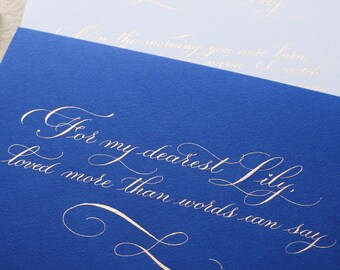 From the morning you were born
For my dearest Lily,
loved more than words can say